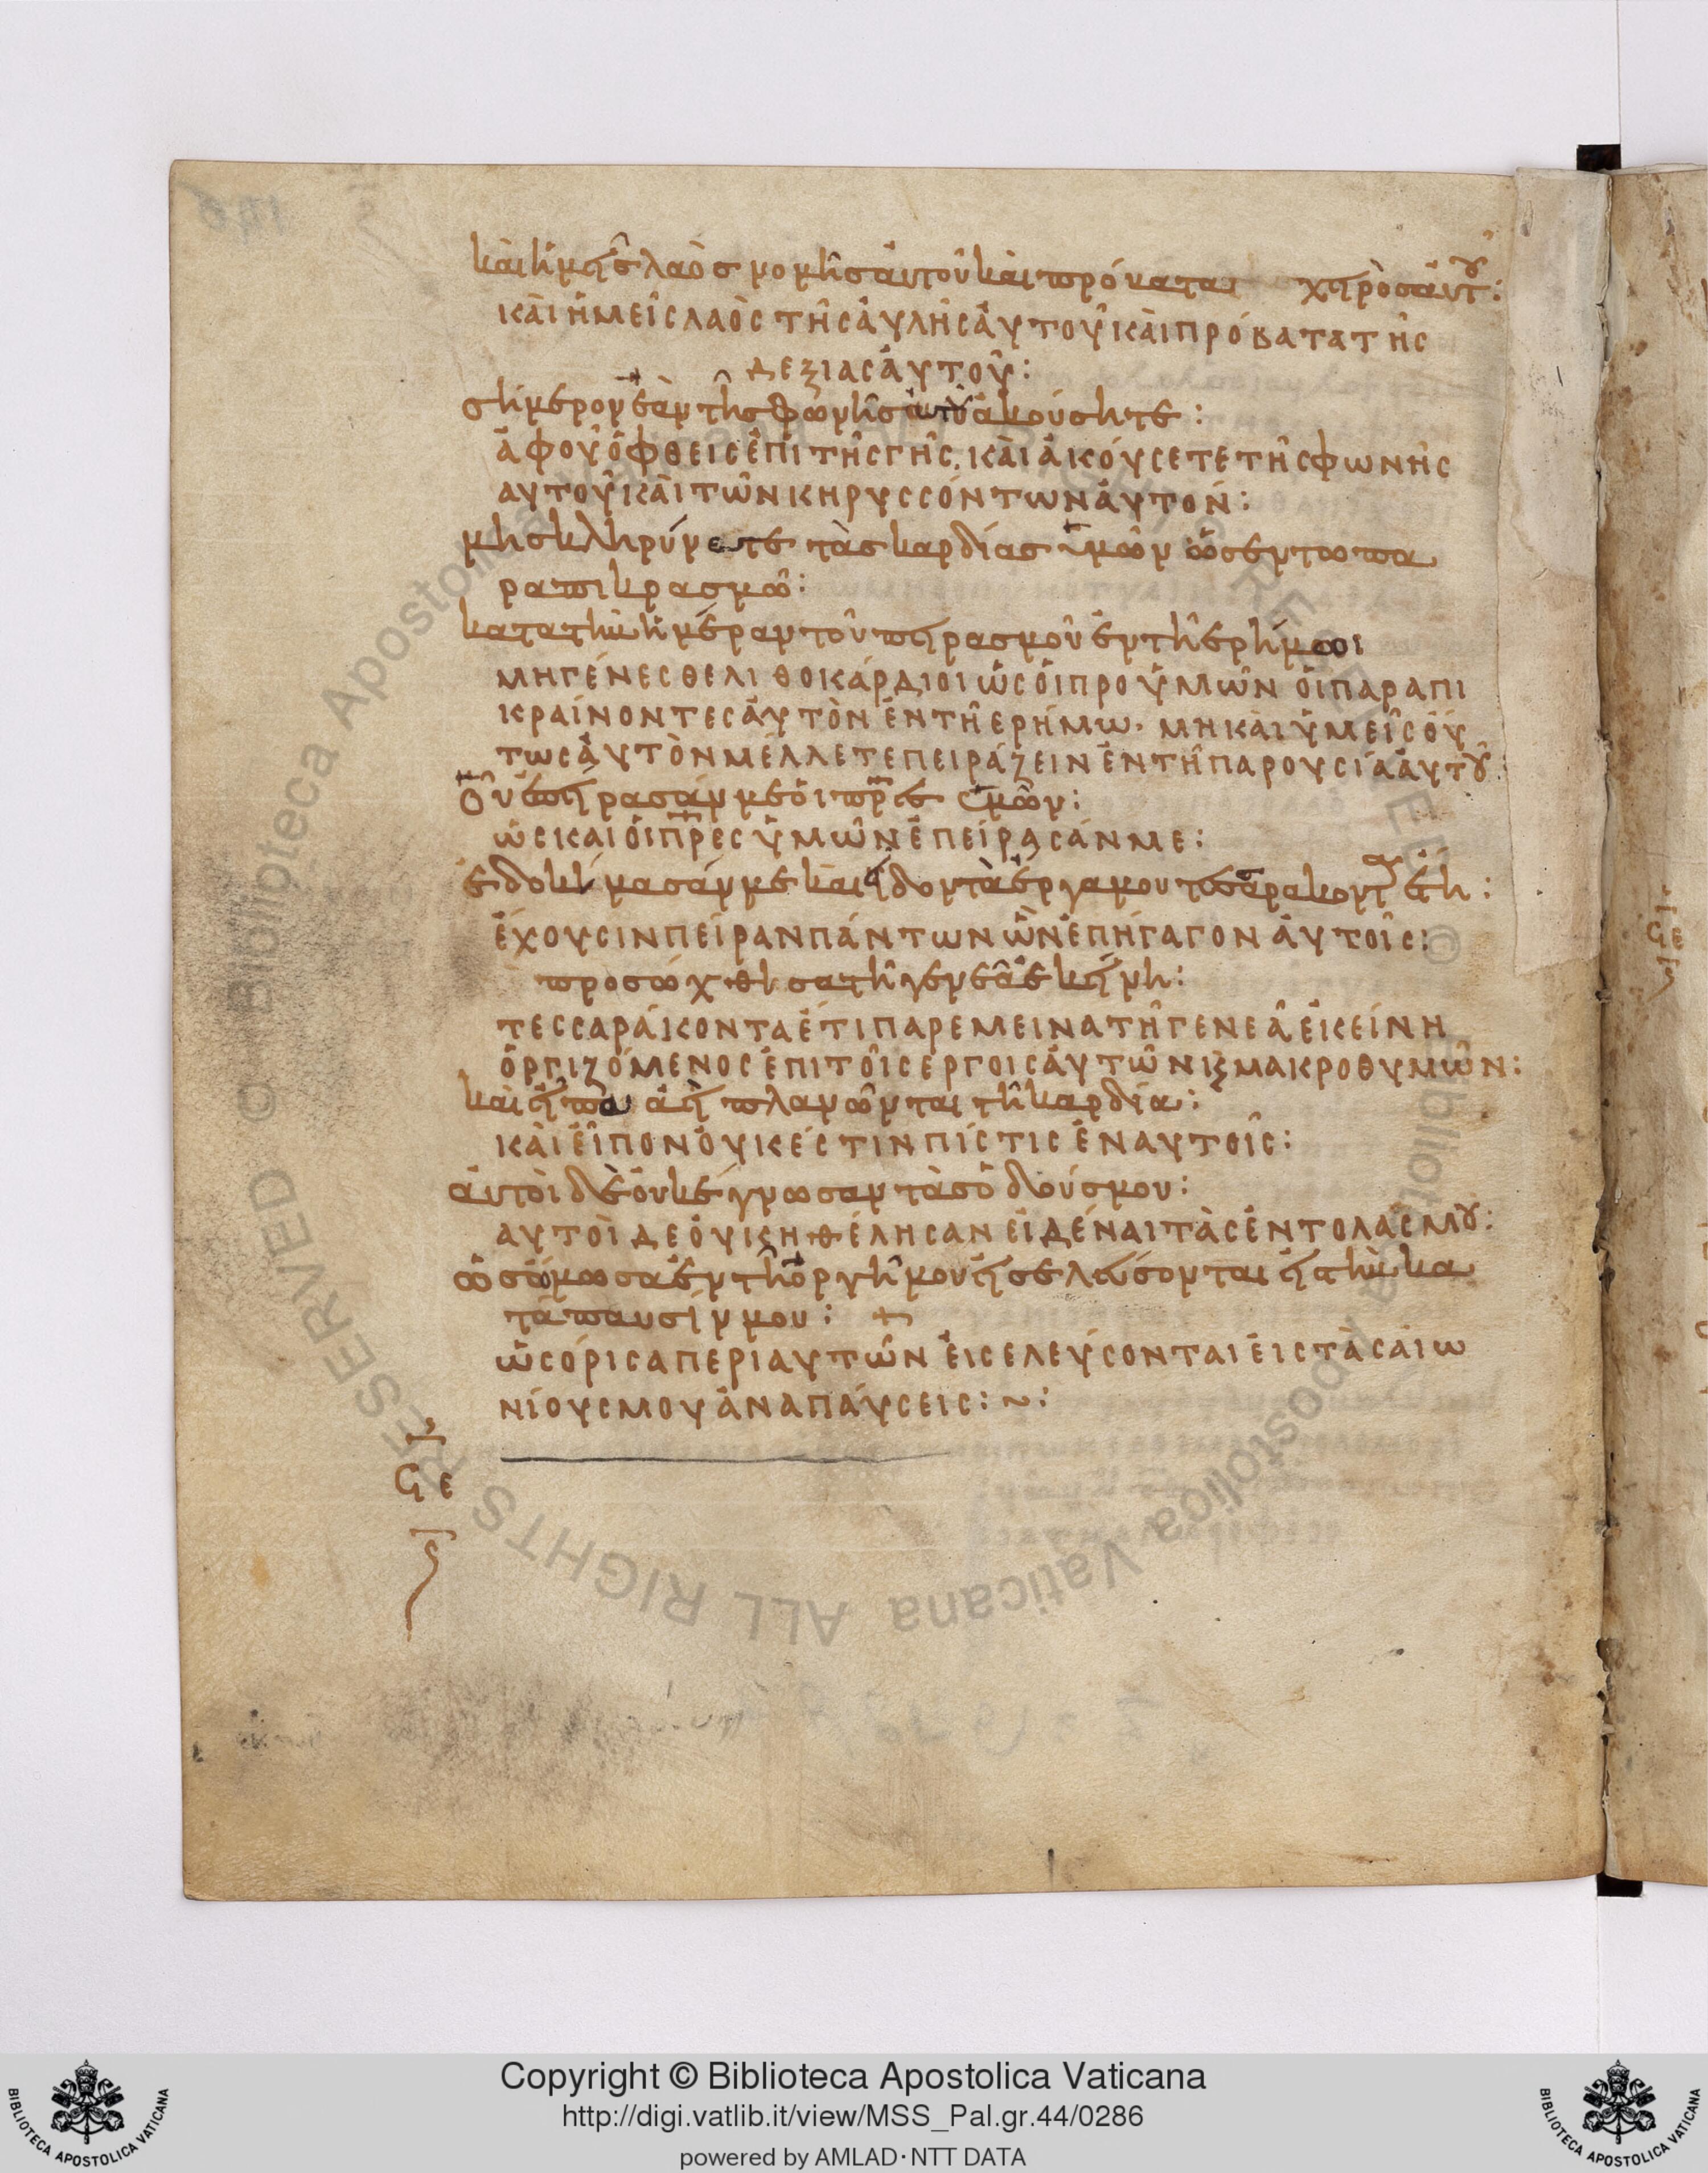 καὶ ἡμεῖς λαὸς νομῆς αὐτοῦ καὶ πρόβατα χειρὸς αὐτοῦ:
ΚΑῚ ἩΜΕΙ͂C ΛΑῸC ΤΗ͂C ἈΥΛΗ͂C ἈΥΤΟΥ͂ ΚΑῚ ΠΡΌΒΑΤΑ ΤΗ͂C
ΔΕΞΙΑC ἈΥΤΟΥ͂:
σήμερον ἐὰν τῆς φωνῆς αὐτοῦ ἀκούσητε:
ἈΦΟΥ͂ ὌΦΘΕΙC ἘΠῚ ΤΗ͂C ΓΗ͂C, ΚΑῚ ἈΚΟΎCΕΤΕ ΤΗ͂C ΦΩΝΗ͂C
ΑΥΤΟΥ͂ ΚΑῚ ΤΩ͂Ν ΚΗΡΥCCΌΝΤΩΝ ἈΥΤΟΝ:
μὴ σκληρύνετε τὰς καρδίας ὑμῶν ὡς ἐν τω πα
ραπικρασμῶ:
κατα τὴν ἡμέραν τοῦ πειρασμοῦ ἐν τῆ ἐρήμωι
ΜΗ ΓΈΝΕCΘΕ ΛΙΘΟΚΆΡΔΙΟΙ ὩC ὉΙ ΠΡΟ ὙΜΩ͂Ν ὉΙ ΠΑΡΑΠΙ
ΚΡΑΊΝΟΝΤΕC ἈΥΤῸΝ ἘΝ ΤΗ͂ ΕΡΉΜΩ· ΜΗ ΚΑῚ ὙΜΕΙ͂C ΟΥ
ΤΩC ἈΥΤῸΝ ΜΈΛΛΕΤΕ ΠΕΙΡΆΖΕΙΝ ἘΝ ΤΗ͂ ΠΑΡΟΥCΊΑ ἈΥΤΟΥ͂:
οὗ ἐπείρασάν με ὁι πρες ὑμῶν:
ὩC ΚΑΙ ὉΙ ΠΡΕC ὙΜΩ͂Ν ἘΠΕΊΡΑCΆΝ ΜΕ:
ἐδοκίμασάν με καὶ ἴδον τὰ ἔργα μου τεσσαράκοντα ἔτη:
ἘΧΟΥCΙΝ ΠΕΙ͂ΡΑΝ ΠΆΝΤΩΝ ὩΝ ἘΠΉΓΑΓΟΝ ἈΥΤΟΙ͂C:
προσώχθισα τῆ γενεᾶ ἐκείνη:
ΤΕCCΑΡΆΚΟΝΤΑ ΈΤΙ ΠΑΡΕΜΕΙΝΑ ΤΗ͂ ΓΕΝΕΑ͂ ἘΚΕΊΝΗ
ὈΡΓΙΖΌΜΕΝΟC ἘΠΙ ΤΟΙ͂C ΕΡΓΟΙC ἈΥΤΩ͂Ν Κ ΜΑΚΡΟΘΥΜΩ͂Ν:
καὶ εἶπα ἀεὶ πλανῶνται τῆ καρδία:
ΚΑῚ ἘΙ͂ΠΟΝ ὈΥΚ ΕCΤΙΝ ΠΊCΤΙC ἘΝ ΑΥΤΟΙ͂C:
ἀυτοὶ δὲ ὀυκ ἔγνωσαν τὰς ὁδούς μου:
ΑΥΤΟῚ ΔΕ ὈΥΚ ΗΘΈΛΗCΑΝ ΕἸΔΈΝΑΙ ΤᾺC ἘΝΤΟΛΆC ΜΟΥ:
ὡς ὤμοσα ἐν τῆ ὀργῆ μου εἰ σελεύσονται εἰς τὴν κα
τάπαυσίν μου: +
ὩC ΌΡΙCΑ ΠΕΡΙ ΑΥΤΩ͂Ν ἘΙCΕΛΕΎCΟΝΤΑΙ ἘΙC ΤᾺC ΑΊΩ
ΝΊΟΥC ΜΟΥ ἈΝΑΠΑΎCΕΙC: ~:
Ϛε
Copyright © Biblioteca Apostolica Vaticana
http://digi.vatlib.it/view/MSS_Pal.gr.44/0286
powered by AMLAD·NTT DATA
BIBLIOTECA APOSTOLICA VATICANA
BIBLIOTECA APOSTOLICA VATICANA